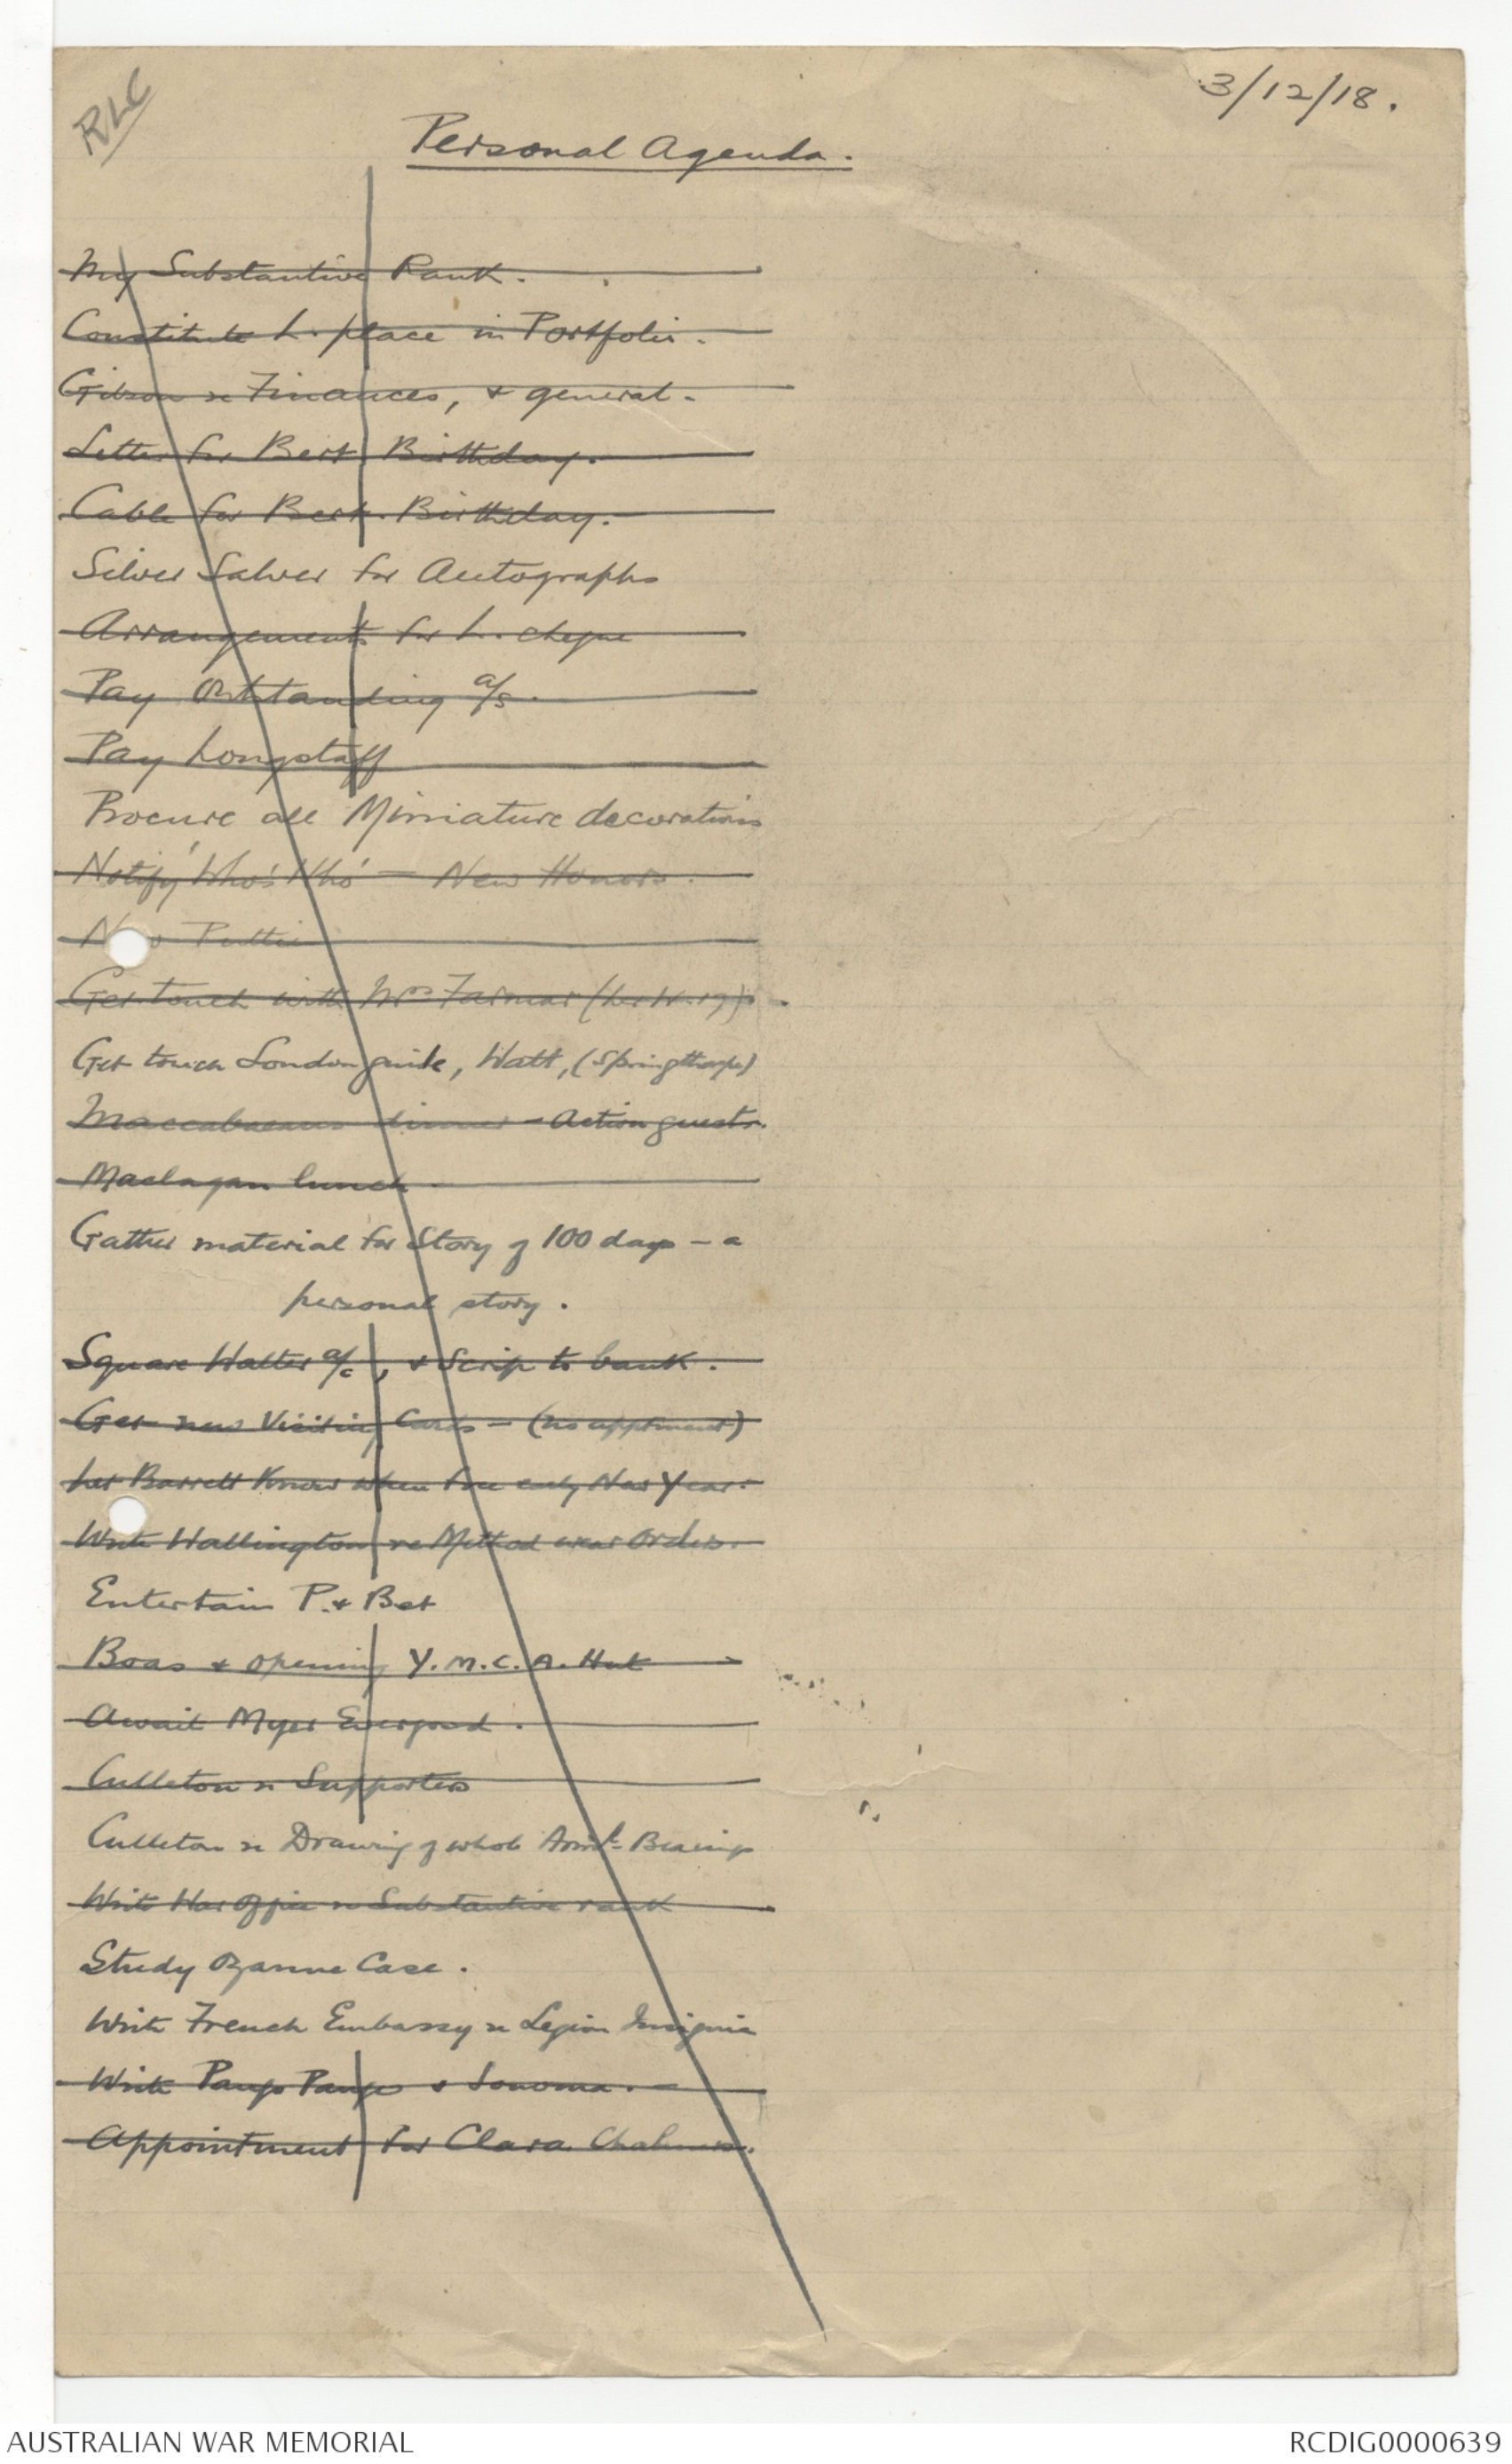 RLC
3/12/18.
Personal Agenda.
My Substantive Rank.
Constitute L. place in Portfolio.
Gibson re Finances, & general.
Letter for Bert. Birthday.
Cable for Bert. Birthday.
Silver Salver for Autographs
Arrangements for L. cheque
Pay Outstanding a/s.
Pay Longstaff
Procure all Miniature decorations
Notify 'Who's Who' — New Honors.
Puttie
Get touch with Mrs Farmar
Get touch London guide, Watt, (Springthorpe)
Maccabaeans dinner - Action guests.
Maclagan lunch
Gather material for Story of 100 days - a
personal story.
Square Walter a/c, & Scrip to bank.
Get new Visiting Cards - (no apptment)
Let Barrett Know when free early New Year.
Write Wallington re Method wear Orders.
Entertain P. & Bet
Boas & opening Y.M.C.A. Hut
Await Myer Evergood.
Culleton re Supporters
Culleton re Drawing of whole Armrl Bearings
Write War Office re Substantive rank
Study Ozanne Case.
Write French Embassy re Legion Insignia
Write Pago Pago & Sonoma.
Appointment for Clara
AUSTRALIAN WAR MEMORIAL
RCDIG0000639